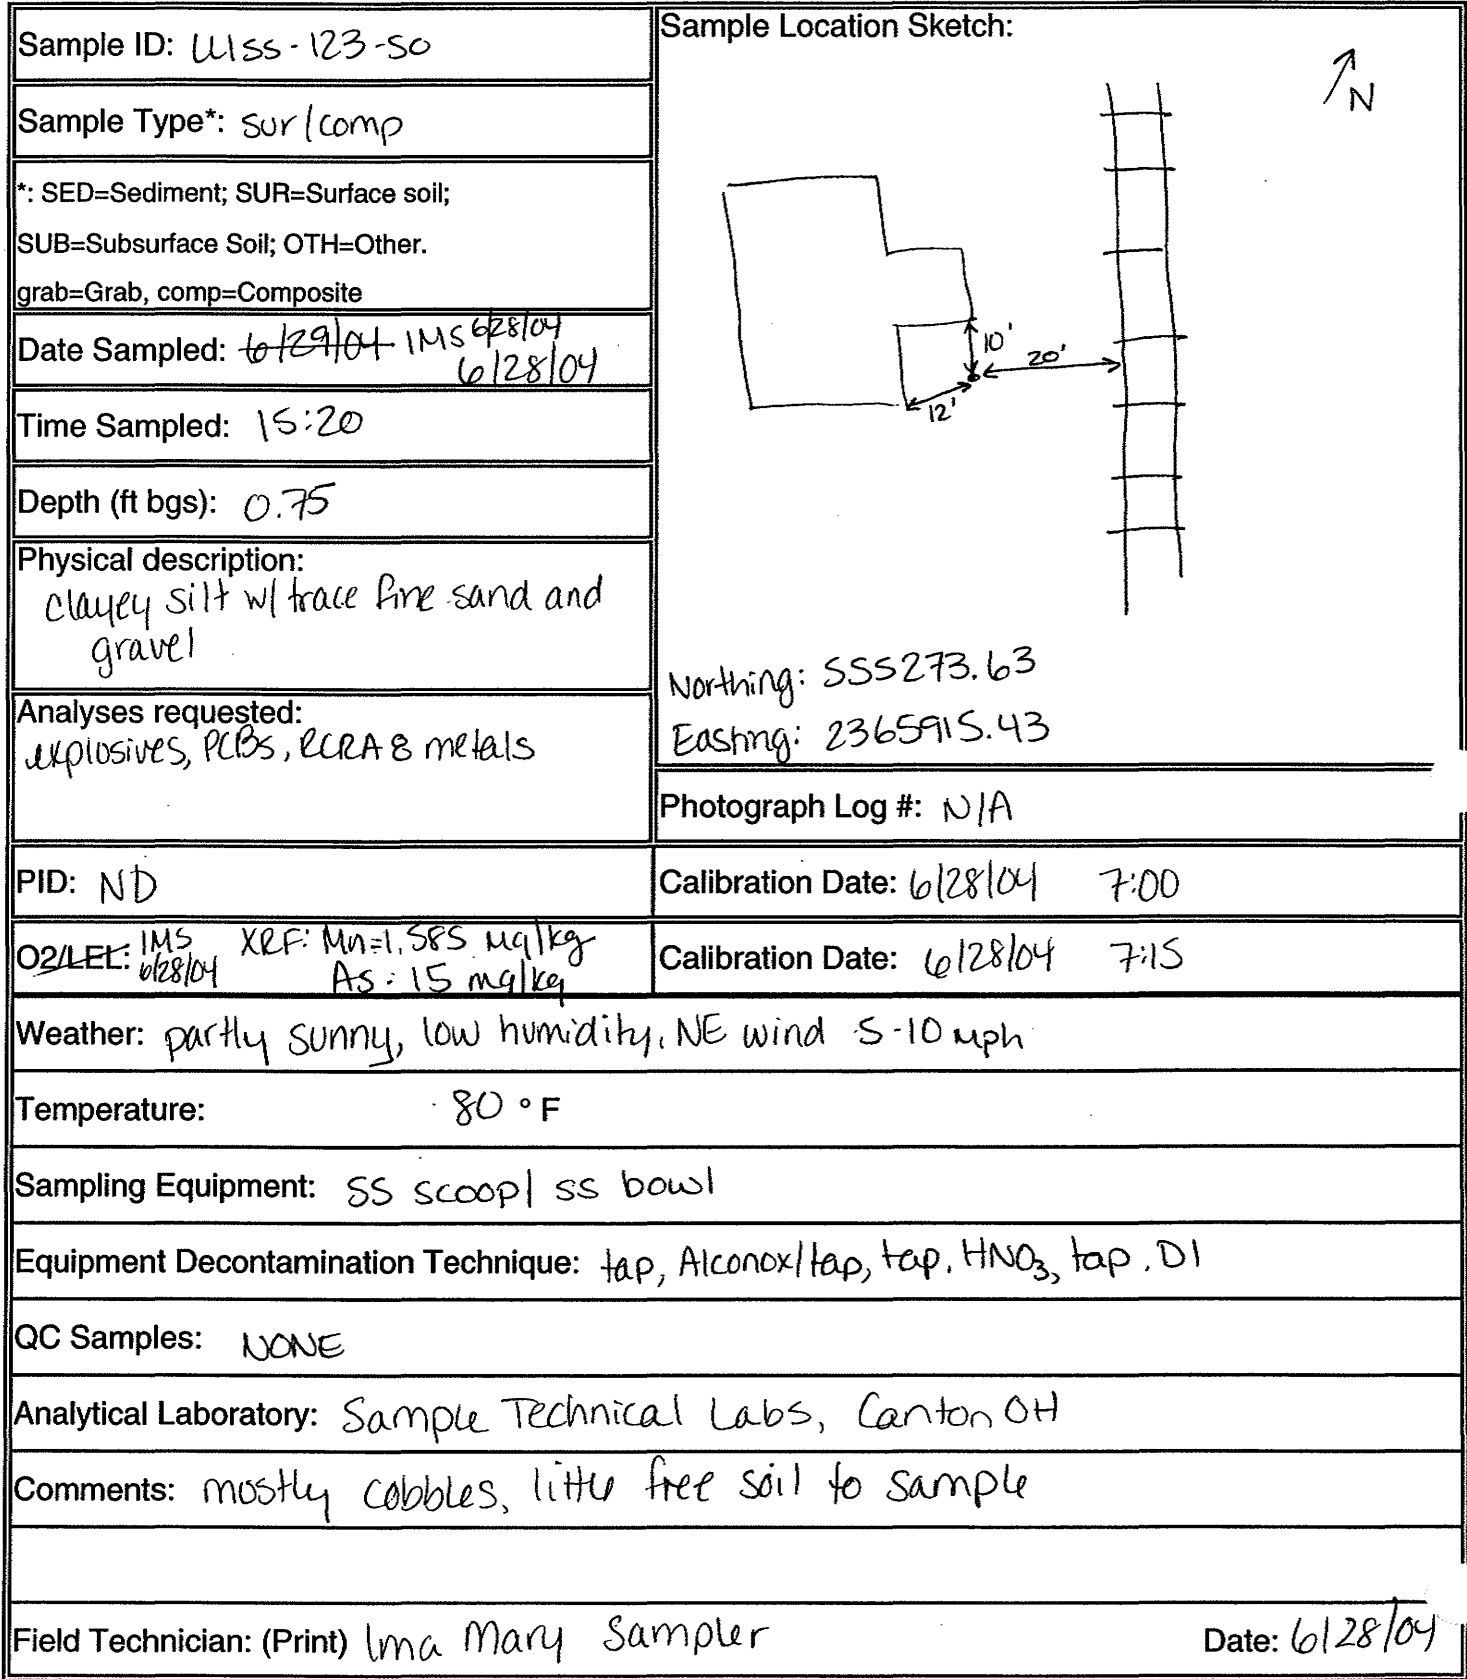 Sample ID: LL1ss-123-SO
Sample Type*: sur/comp
*: SED=Sediment; SUR=Surface soil;
SUB=Subsurface Soil; OTH=Other.
grab=Grab, comp=Composite
Date Sampled: 6/29/04 IMS 6/28/04
6/28/04
Time Sampled: 15:20
Depth (ft bgs): 0.75
Physical description:
clayey silt w/ trace fine sand and
gravel
Analyses requested:
explosives, PCBs, RCRA 8 metals
Sample Location Sketch:
N
10'
20'
12'
Northing: 555273.63
Easting: 2365915.43
Photograph Log #: N/A
PID: ND
Calibration Date: 6/28/04 7:00
O2/LEL: IMS 6/28/04 XRF: Mn=1,585 mg/kg
As: 15 mg/kg
Calibration Date: 6/28/04 7:15
Weather: partly sunny, low humidity, NE wind 5-10 mph
Temperature: 80 °F
Sampling Equipment: SS scoop/ ss bowl
Equipment Decontamination Technique: tap, Alconox/tap, tap, HNO3, tap, DI
QC Samples: NONE
Analytical Laboratory: Sample Technical Labs, Canton OH
Comments: mostly cobbles, little free soil to sample
Field Technician: (Print) Ima Mary Sampler
Date: 6/28/04